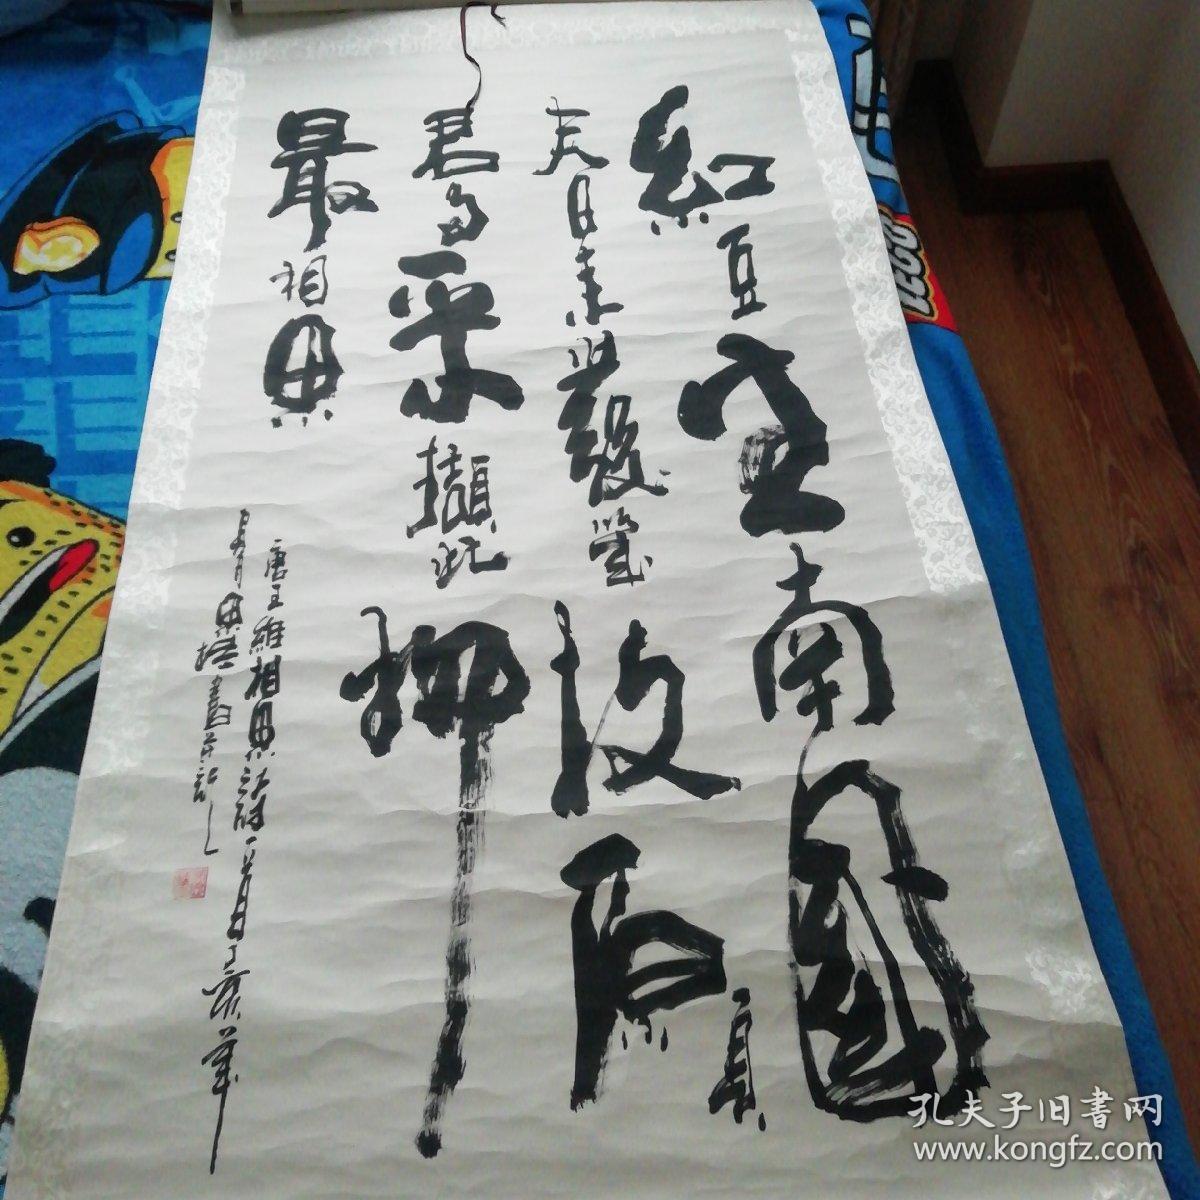 紅豆生南國
春日来發幾枝願
君多采擷此物
最相思
唐王維相思詩一首丁亥年
書并記
LEGO
孔夫子旧書网
www.kongfz.com